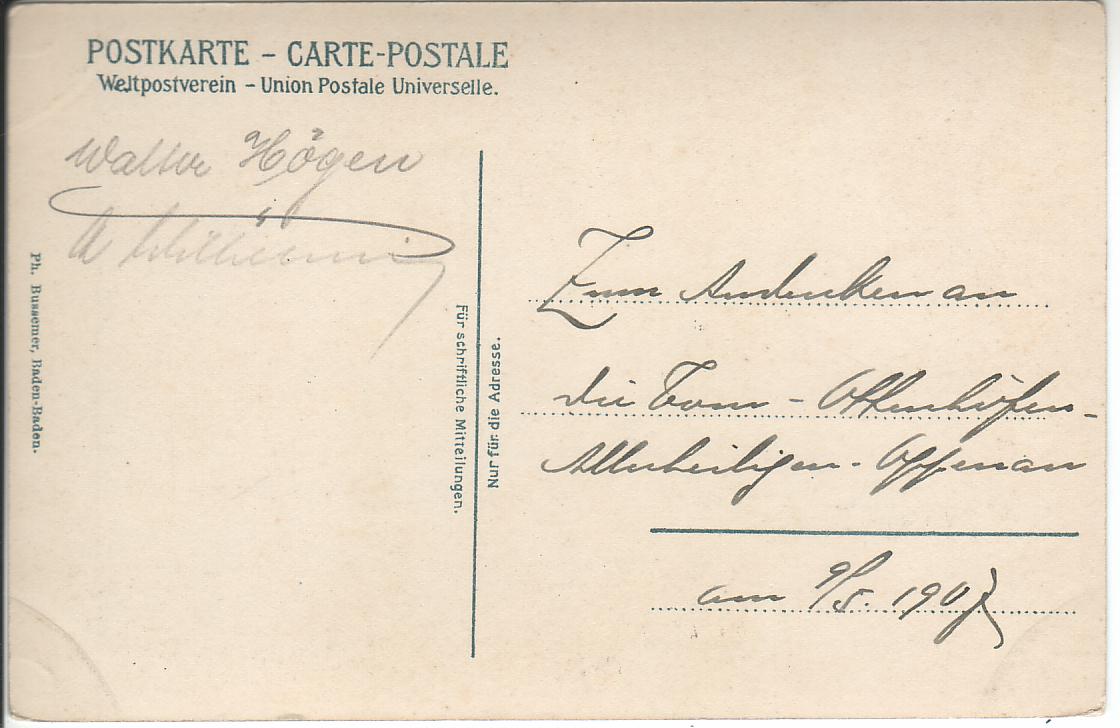 POSTKARTE – CARTE-POSTALE
Weltpostverein – Union Postale Universelle.
Walter Högen
Ph. Bussemer, Baden-Baden.
Für schriftliche Mitteilungen.
Nur für die Adresse.
Zum Andenken an
die Tour – Ottenhöfen-
Allerheiligen - Oppenau
am 9/5. 1907